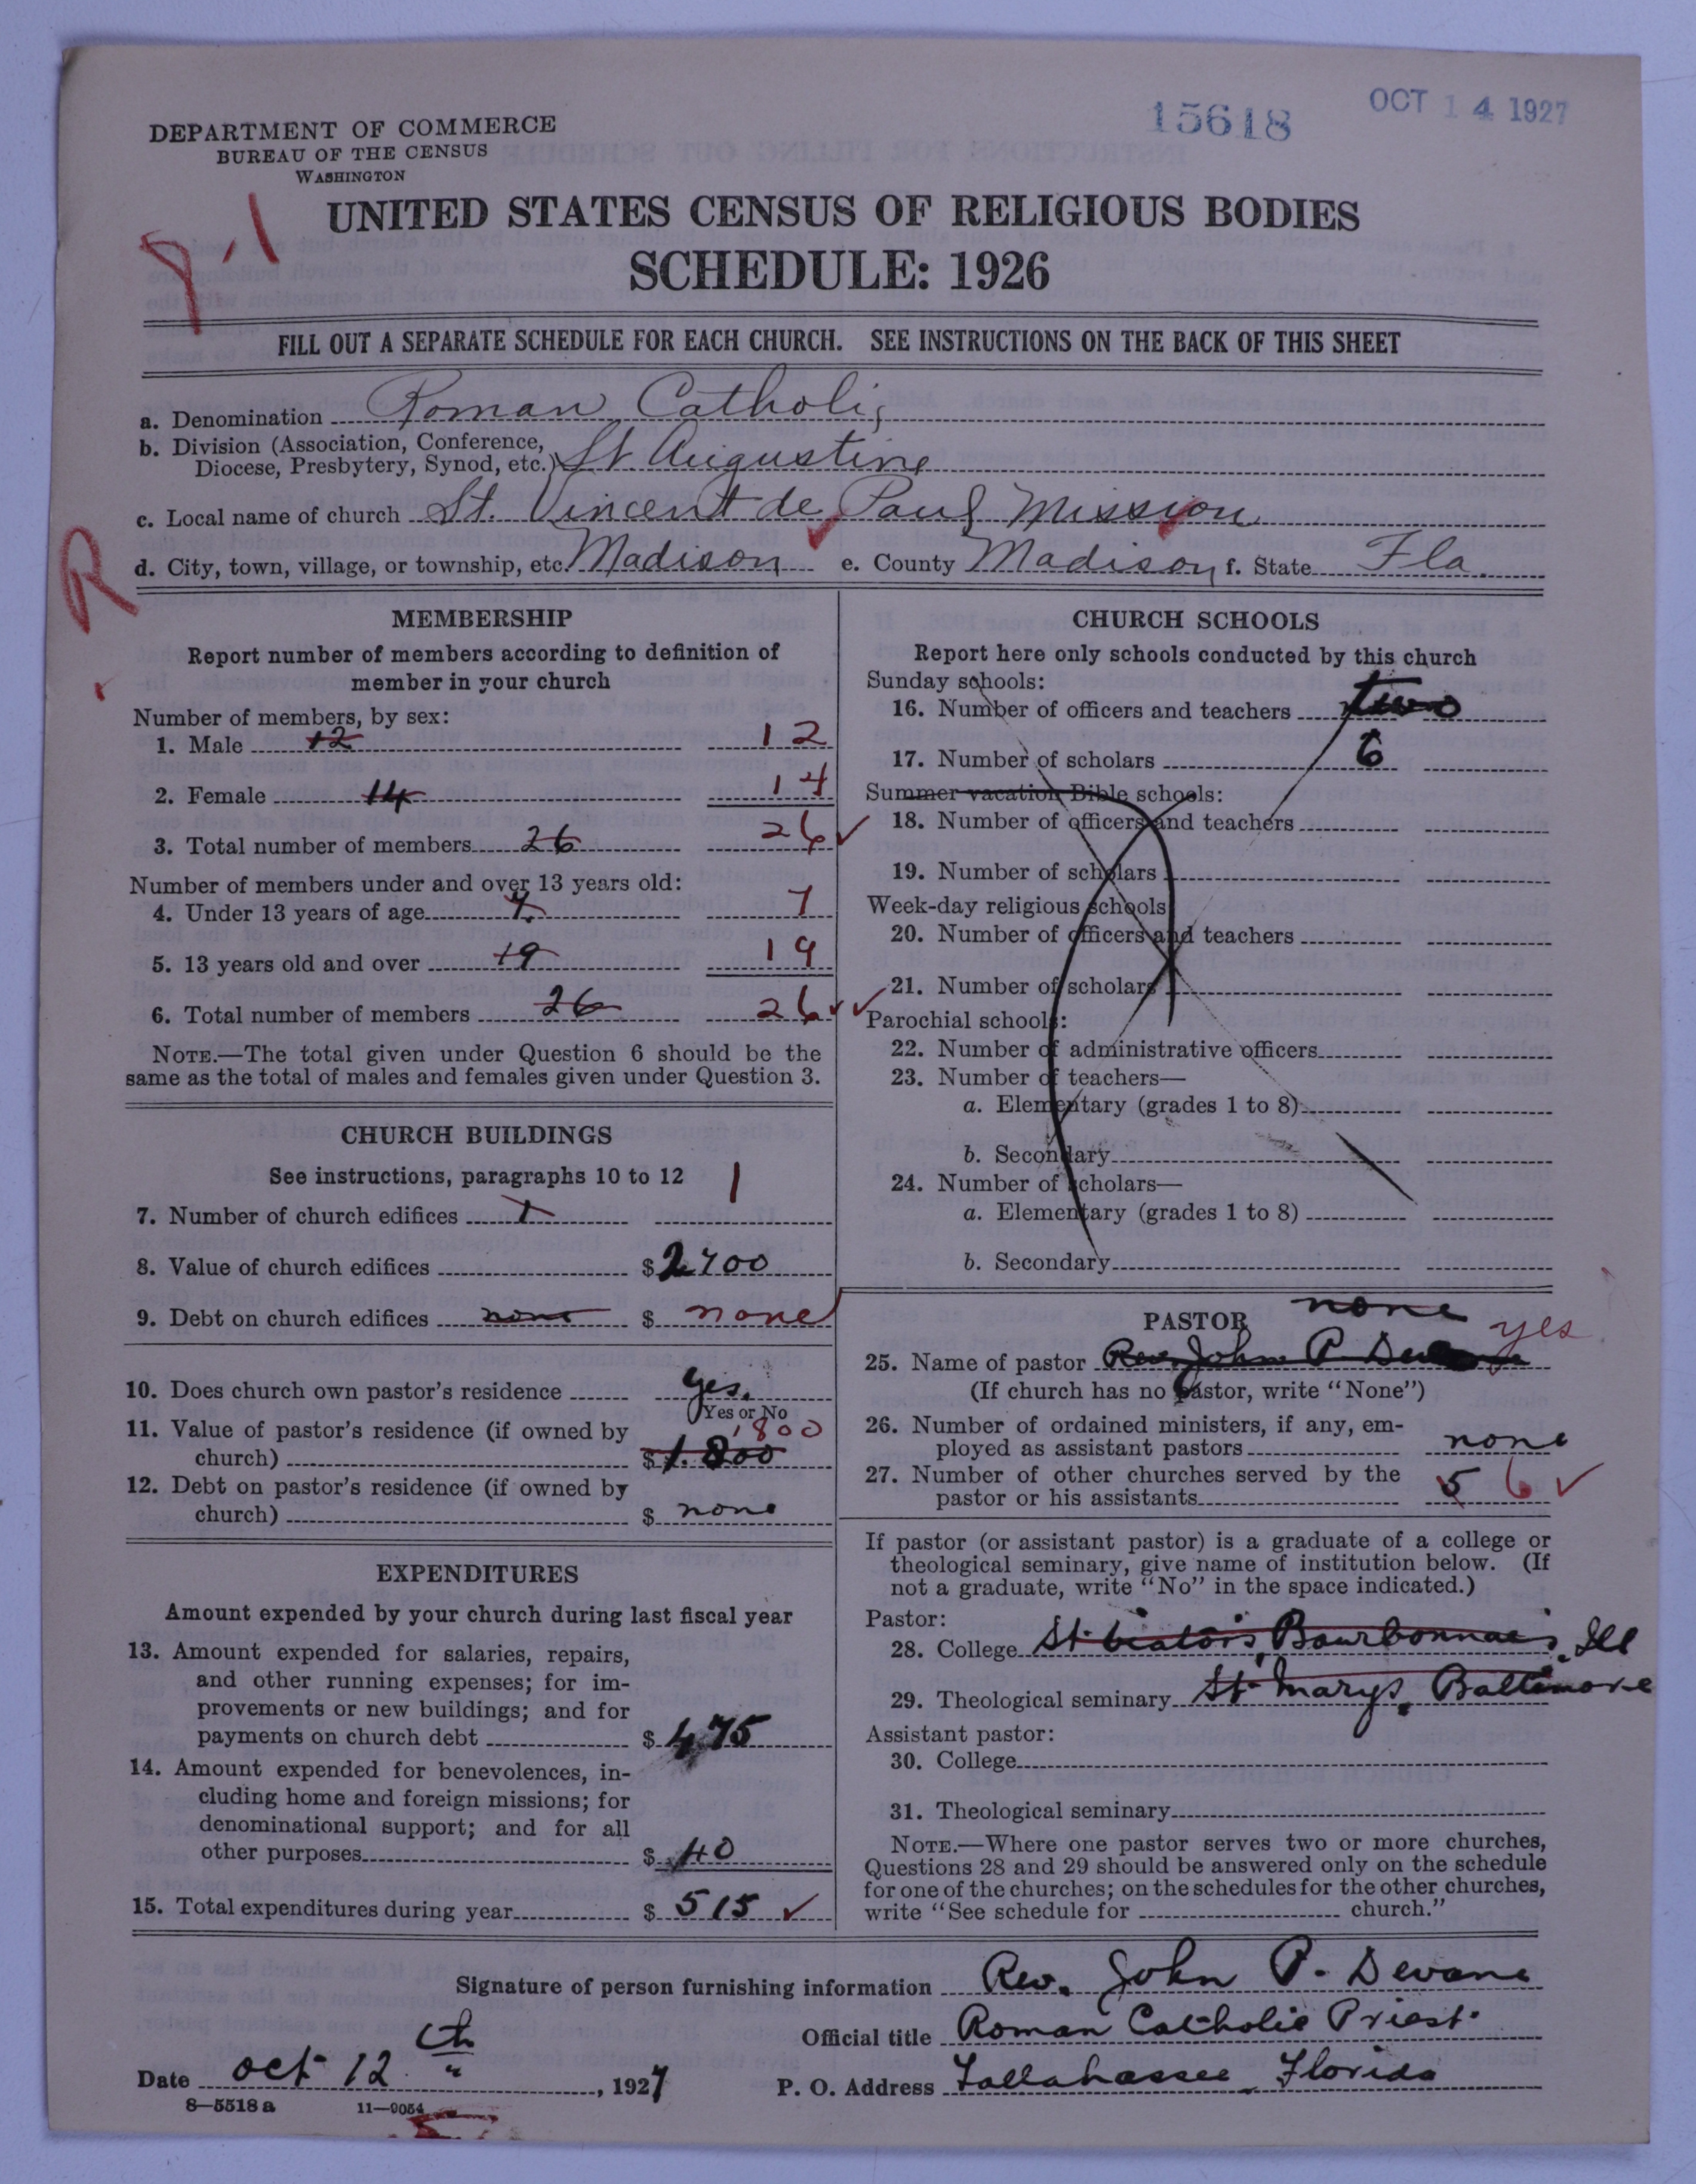 15618 OCT 14 1927
DEPARTMENT OF COMMERCE
BUREAU OF THE CENSUS
WASHINGTON
UNITED STATES CENSUS OF RELIGIOUS BODIES
SCHEDULE: 1926
FILL OUT A SEPARATE SCHEDULE FOR EACH CHURCH. SEE INSTRUCTIONS ON THE BACK OF THIS SHEET
a. Denomination Roman Catholic
b. Division (Association, Conference,
Diocese, Presbytery, Synod, etc.) St Augustine
c. Local name of church St. Vincent de Paul Mission
d. City, town, village, or township, etc. Madison e. County Madison f. State Fla.
R
MEMBERSHIP
Report number of members according to definition of
member in your church
Number of members, by sex:
1. Male 12 12
2. Female 14 14
3. Total number of members 26 26 ✓
Number of members under and over 13 years old:
4. Under 13 years of age 7 7
5. 13 years old and over 19 19
6. Total number of members 26 26 ✓ ✓
NOTE.—The total given under Question 6 should be the
same as the total of males and females given under Question 3.
CHURCH BUILDINGS
See instructions, paragraphs 10 to 12 1
7. Number of church edifices 1
8. Value of church edifices $ 2700
9. Debt on church edifices none $ none
10. Does church own pastor's residence yes.
Yes or No
11. Value of pastor's residence (if owned by 1800
church) $ 1.800
12. Debt on pastor's residence (if owned by
church) $ none
EXPENDITURES
Amount expended by your church during last fiscal year
13. Amount expended for salaries, repairs,
and other running expenses; for im-
provements or new buildings; and for
payments on church debt $ 475
14. Amount expended for benevolences, in-
cluding home and foreign missions; for
denominational support; and for all
other purposes $ 40
15. Total expenditures during year $ 515 ✓
CHURCH SCHOOLS
Report here only schools conducted by this church
Sunday schools:
16. Number of officers and teachers two
17. Number of scholars 6
Summer vacation Bible schools:
18. Number of officers and teachers
19. Number of scholars
Week-day religious schools
20. Number of officers and teachers
21. Number of scholars
Parochial schools:
22. Number of administrative officers
23. Number of teachers—
a. Elementary (grades 1 to 8)
b. Secondary
24. Number of scholars—
a. Elementary (grades 1 to 8)
b. Secondary
PASTOR none
yes
25. Name of pastor Rev. John P Devane
(If church has no pastor, write "None")
26. Number of ordained ministers, if any, em-
ployed as assistant pastors none
27. Number of other churches served by the
pastor or his assistants 5 6 ✓
If pastor (or assistant pastor) is a graduate of a college or
theological seminary, give name of institution below. (If
not a graduate, write "No" in the space indicated.)
Pastor:
28. College St. Viators, Bourbonnais, Ill
29. Theological seminary St. Marys, Baltimore
Assistant pastor:
30. College
31. Theological seminary
NOTE.—Where one pastor serves two or more churches,
Questions 28 and 29 should be answered only on the schedule
for one of the churches; on the schedules for the other churches,
write "See schedule for church."
Signature of person furnishing information Rev. John P. Devane
Official title Roman Catholic Priest.
Date Oct 12th, 1927 P. O. Address Tallahassee, Florida
8—5518 a 11—9054